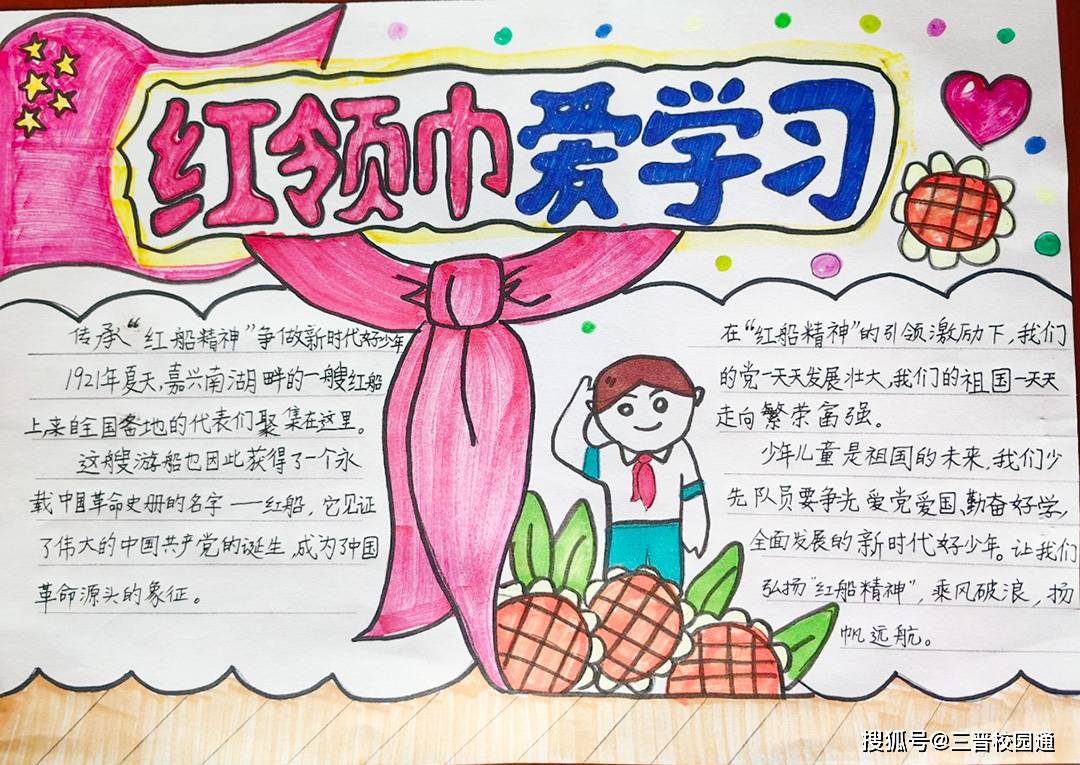 红领巾爱学习
传承“红船精神”争做新时代好少年
1921年夏天,嘉兴南湖畔的一艘红船
上来自全国各地的代表们聚集在这里。
这艘游船也因此获得了一个永
载中国革命史册的名字——红船,它见证
了伟大的中国共产党的诞生,成为了中国
革命源头的象征。
在“红船精神”的引领激励下,我们
的党一天天发展壮大,我们的祖国一天天
走向繁荣富强。
少年儿童是祖国的未来,我们少
先队员要争光爱党爱国、勤奋好学,
全面发展的新时代好少年。让我们
弘扬“红船精神”,乘风破浪,扬
帆远航。
搜狐号@三晋校园通